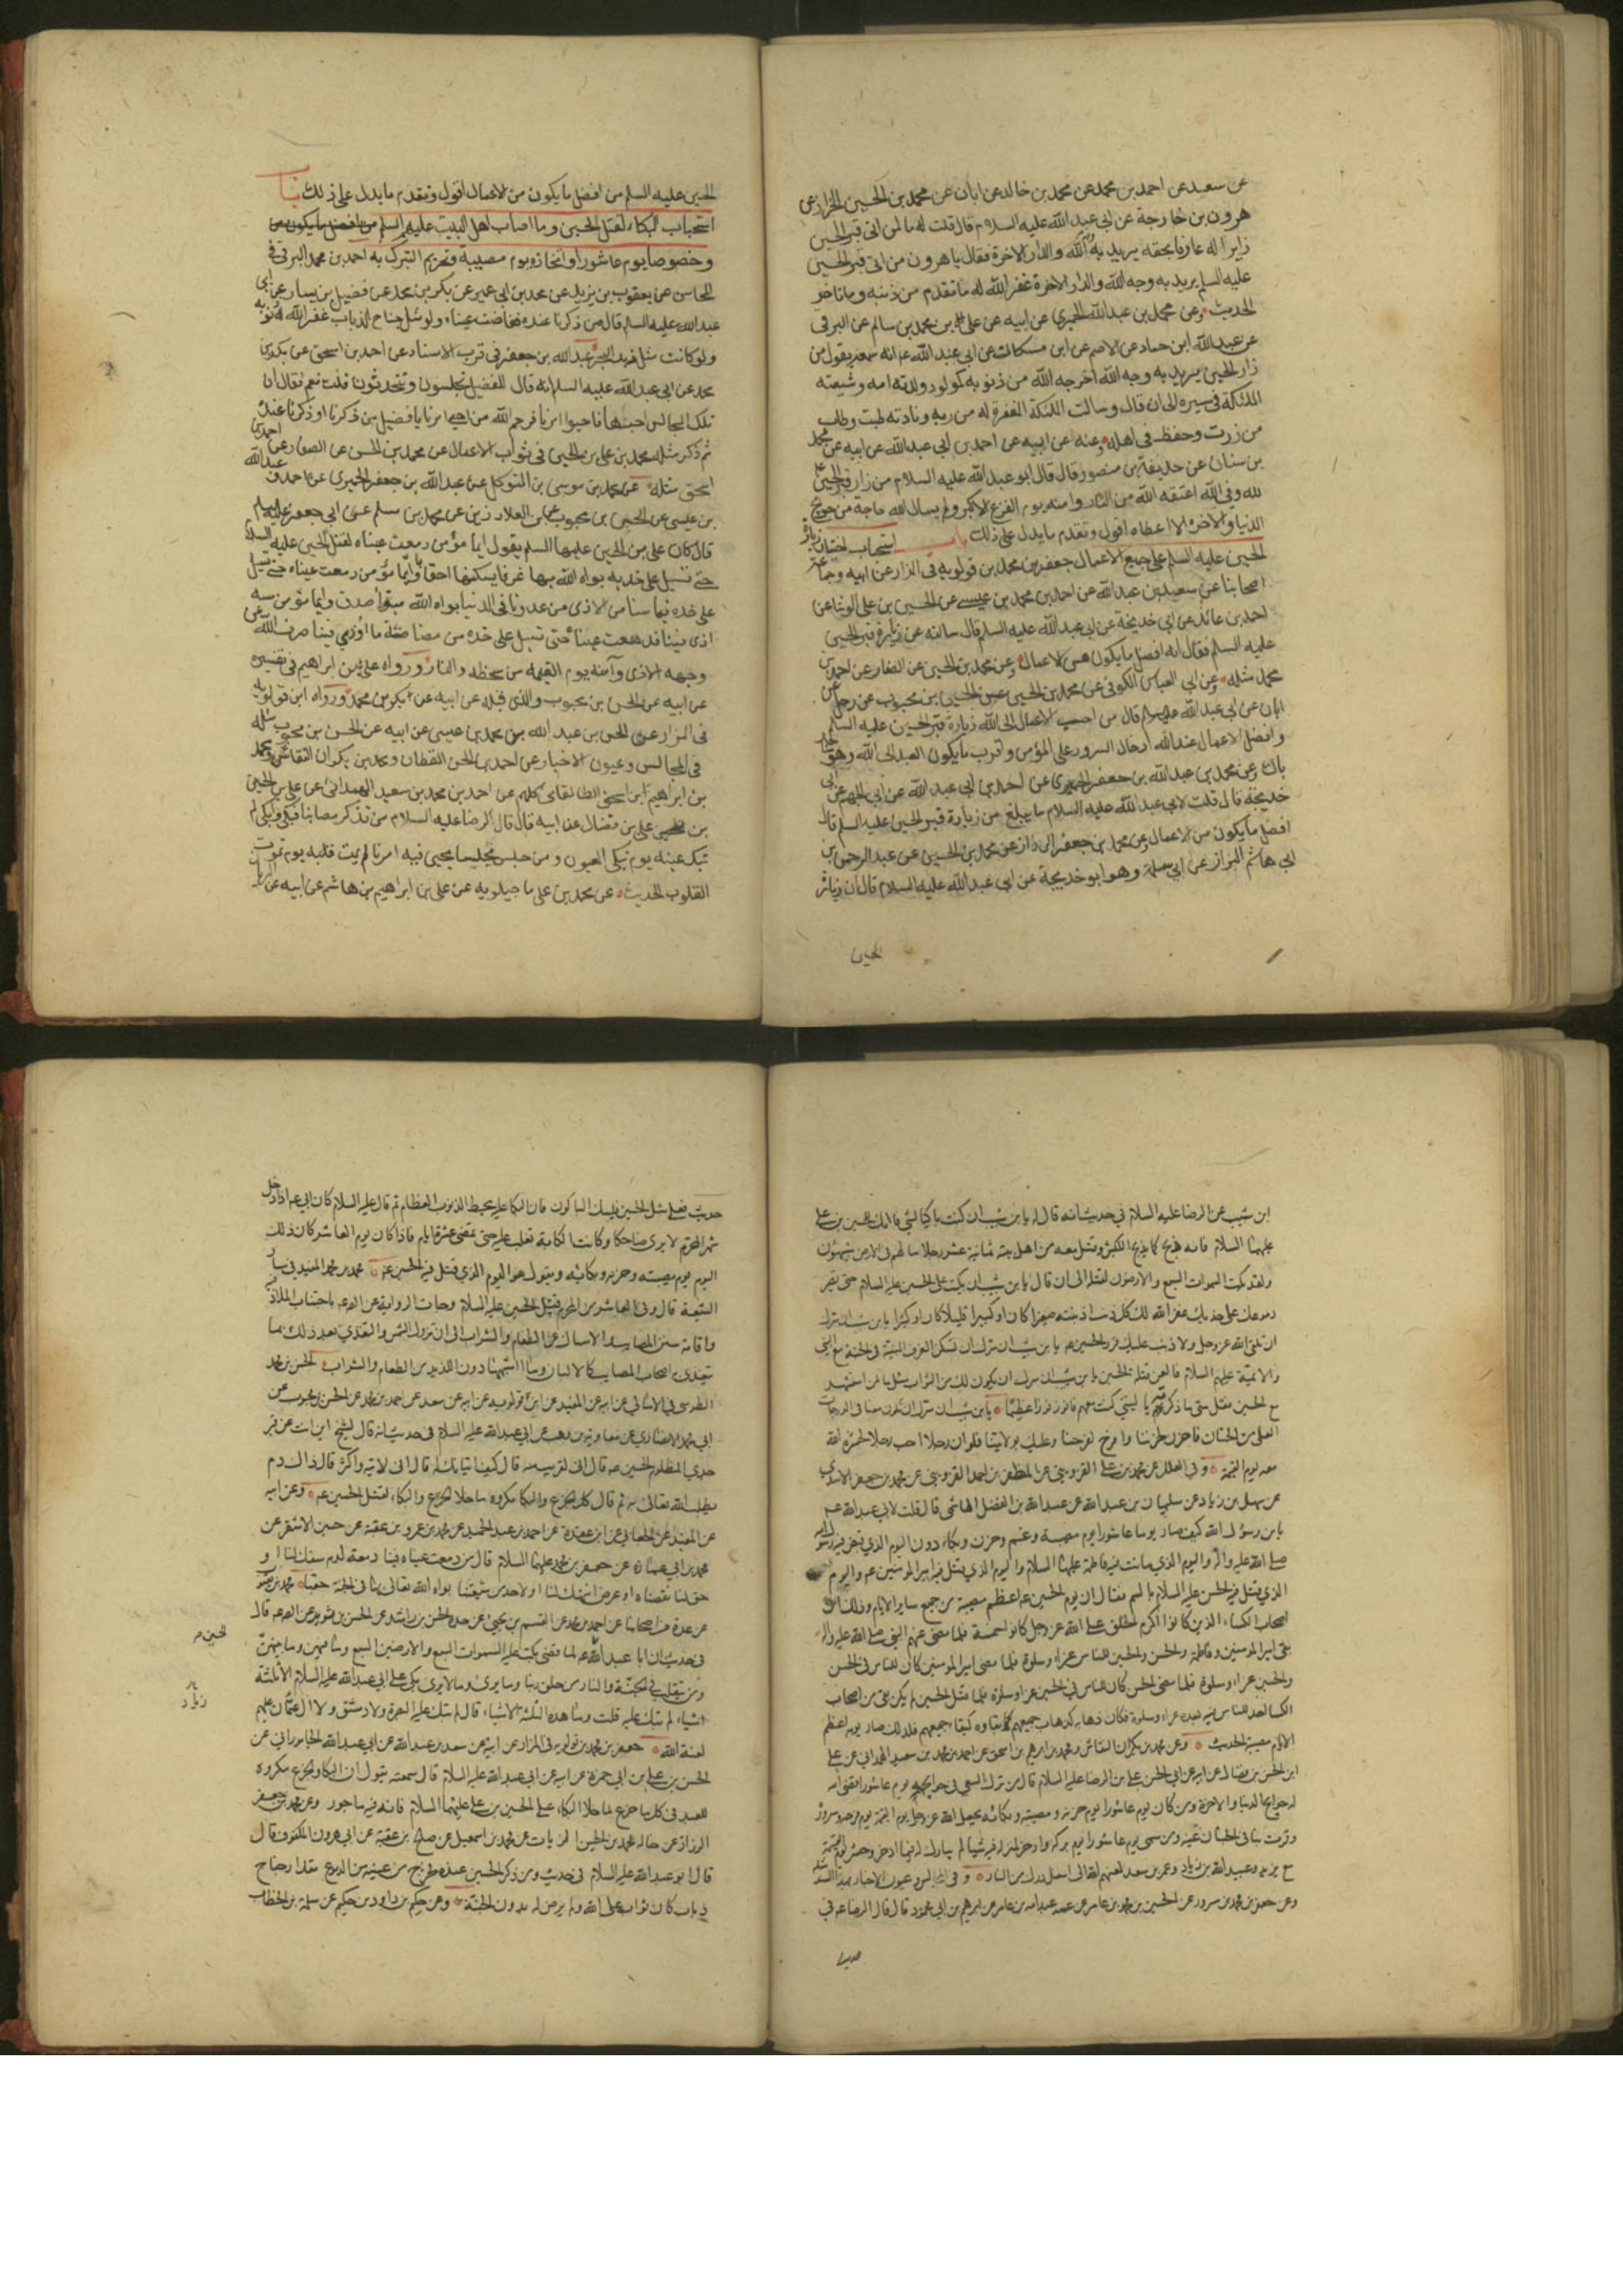 عن سعيد عن احمد بن محمد عن محمد بن خالد عن ابان عن محمد بن الحسين الخزاز عن
هرون بن خارجة عن ابي عبد الله عليه السلام قال قلت له ما لمن اتى قبر الحسين
زايرا له عارفا بحقه يريد به وجه الله والدار الاخرة فقال يا هرون من اتى قبر الحسين
عليه السلم يريد به وجه الله والدار الاخرة غفر الله له ما تقدم من ذنبه وما تاخر
الحديث وعن محمد بن عبد الله الحميري عن ابيه عن علي بن محمد بن سالم عن البرقي
عن عبد الله ابن حماد عن الاصم عن ابن مسكان عن ابي عبد الله انه سمعه يقول من
زار الحسين يريد به وجه الله اخرجه الله من ذنوبه كمولود ولدته امه وشيعته
الملئكة في مسيره الى ان قال وسالت الملئكة المغفرة له من ربه ونادته طبت وطاب
من زرت وحفظ في اهله وعنه عن ابيه عن احمد بن ابي عبد الله عن ابيه عن محمد
بن سنان عن حذيفة بن منصور قال قال ابو عبد الله عليه السلام من زار قبر الحسين
لله وفي الله اعتقه الله من النار وامنه يوم الفزع الاكبر ولم يسال الله حاجة من حوائج
الدنيا والاخرة الا اعطاه اقول وتقدم ما يدل على ذلك باب استحباب اختيار زيارة
الحسين عليه السلم على جميع الاعمال جعفر بن محمد بن قولويه في المزار عن ابيه وجماعة
اصحابنا عن سعد بن عبد الله عن احمد بن محمد بن عيسى عن الحسن بن علي الوشا عن
احمد بن عائذ عن ابي خديجة عن ابي عبد الله عليه السلم قال سالته عن زيارة قبر الحسين
عليه السلم فقال انه افضل ما يكون من الاعمال وعن محمد بن الحسن عن الصفار عن احمد بن
محمد مثله وعن ابي العباس الكوفي عن محمد بن الحسين عن الحسن بن محبوب عن رجل عن
ابان عن ابي عبد الله قال من احب الاعمال الى الله زيارة قبر الحسين عليه السلم
وافضل الاعمال عند الله ادخال السرور على المؤمن واقرب ما يكون العبد الى الله وهو ساجد
باك وعن محمد بن عبد الله بن جعفر الحميري عن احمد بن ابي عبد الله عن ابي الجهم عن ابي
خديجة قال قلت لابي عبد الله عليه السلام ما يبلغ من زيارة قبر الحسين عليه السلم قال
افضل ما يكون من الاعمال وعن محمد بن جعفر الرزاز عن محمد بن الحسين عن عبد الرحمن بن
ابي هاشم البزاز عن ابي سلمة وهو ابو خديجة عن ابي عبد الله عليه السلام قال ان زيارة
الحسين
الحسين عليه السلم من افضل ما يكون من الاعمال اقول وتقدم ما يدل على ذلك باب
استحباب البكاء لقتل الحسين وما اصاب اهل البيت عليهم السلم
وخصوصا يوم عاشورا واتخاذه يوم مصيبة وتحريم التبرك به احمد بن محمد البرقي في
المحاسن عن يعقوب بن يزيد عن محمد بن ابي عمير عن بكر بن محمد عن فضيل بن يسار عن ابي
عبد الله عليه السلم قال من ذكرنا عنده ففاضت عيناه ولو مثل جناح الذباب غفر الله له ذنوبه
ولو كانت مثل زبد البحر عبد الله بن جعفر في قرب الاسناد عن احمد بن اسحق عن بكر بن
محمد عن ابي عبد الله عليه السلم انه قال للفضيل تجلسون وتتحدثون قلت نعم فقال ان
تلك المجالس احبها فاحيوا امرنا فرحم الله من احيى امرنا يا فضيل من ذكرنا او ذكرنا عنده
ثم ذكر مثله محمد بن علي بن الحسين في ثواب الاعمال عن محمد بن الحسن عن الصفار عن احمد بن
اسحق مثله عن محمد بن موسى بن المتوكل عن عبد الله بن جعفر الحميري عن احمد و عبد الله
بن عيسى عن الحسن بن محبوب عن العلا بن رزين عن محمد بن مسلم عن ابي جعفر عليه السلم
قال كان علي بن الحسين عليهما السلم يقول ايما مؤمن دمعت عيناه لقتل الحسين عليه السلام
حتى تسيل على خده بواه الله بها غرفا يسكنها احقابا وايما مؤمن دمعت عيناه حتى تسيل
على خده فيما مسنا من الاذى من عدونا في الدنيا بواه الله مبوأ صدق وايما مؤمن مسه
اذى فينا فدمعت عيناه حتى تسيل على خده من مضاضة ما اوذي فينا صرف الله عن
وجهه الاذى وآمنه يوم القيمة من سخطه والنار ورواه علي بن ابراهيم في تفسيره
عن ابيه عن الحسن بن محبوب والذي قبله عن ابيه عن بكر بن محمد ورواه ابن قولويه
في المزار عن الحسن بن عبد الله بن محمد بن عيسى عن ابيه عن الحسن بن محبوب مثله
في المجالس وعيون الاخبار عن احمد بن الحسن القطان ومحمد بن بكران النقاش ومحمد
بن ابراهيم ابن اسحق الطالقاني كلهم عن احمد بن محمد بن سعيد الهمداني عن علي بن الحسن
بن علي بن فضال عن ابيه قال قال الرضا عليه السلام من تذكر مصابنا فبكى وابكى لم
تبك عينه يوم تبكي العيون ومن جلس مجلسا يحيى فيه امرنا لم يمت قلبه يوم تموت
القلوب الحديث عن محمد بن علي ماجيلويه عن علي بن ابراهيم بن هاشم عن ابيه عن الريان
ابن شبيب عن الرضا عليه السلام في حديث انه قال له يا بن شبيب ان كنت باكيا لشئ فابك للحسين بن علي
عليهما السلام فانه ذبح كما يذبح الكبش وقتل معه من اهل بيته ثمانية عشر رجلا ما لهم في الارض شبيهون
ولقد بكت السموات السبع والارضون لقتله الى ان قال يا بن شبيب ان بكيت على الحسين عليه السلام حتى تصير
دموعك على خديك غفر الله لك كل ذنب اذنبته صغيرا كان او كبيرا قليلا كان او كثيرا يا بن شبيب ان سرك
ان تلقى الله عز وجل ولا ذنب عليك فزر الحسين يا بن شبيب ان سرك ان تسكن الغرف المبنية في الجنة مع النبي
والائمة عليهم السلام فالعن قتلة الحسين يا بن شبيب ان سرك ان يكون لك من الثواب مثل ما لمن استشهد
مع الحسين فقل متى ما ذكرته يا ليتني كنت معهم فافوز فوزا عظيما يا بن شبيب ان سرك ان تكون معنا في الدرجات
العلى من الجنان فاحزن لحزننا وافرح لفرحنا وعليك بولايتنا فلو ان رجلا احب رجلا لحشره الله
معه يوم القيمة وفي العلل عن محمد بن علي القزويني عن المظفر بن احمد القزويني عن محمد بن جعفر الاسدي
عن سهل بن زياد عن سليمان بن عبد الله عن عبد الله بن الفضل الهاشمي قال قلت لابي عبد الله
يا بن رسول الله كيف صار يوم عاشورا يوم مصيبة وغم وحزن وبكاء دون اليوم الذي قبض فيه رسول الله
صلى الله عليه واله واليوم الذي ماتت فيه فاطمة عليها السلام واليوم الذي قتل فيه امير المؤمنين واليوم
الذي قتل فيه الحسن عليه السلام بالسم فقال ان يوم الحسين اعظم مصيبة من جميع ساير الايام وذلك ان
اصحاب الكساء الذين كانوا اكرم الخلق على الله عز وجل كانوا خمسة فلما مضى عنهم النبي صلى الله عليه واله
بقي امير المؤمنين وفاطمة والحسن والحسين للناس عزاء وسلوة فلما مضى امير المؤمنين كان للناس في الحسن
والحسين عزاء وسلوة فلما مضى الحسن كان للناس في الحسين عزاء وسلوة فلما قتل الحسين لم يكن بقي من اصحاب
الكسا احد للناس فيه بعده عزاء وسلوة فكان ذهابه كذهاب جميعهم كما بقاؤه كبقاء جميعهم فلذلك صار يومه اعظم
الايام مصيبة الحديث وعن محمد بن بكران النقاش ومحمد بن ابراهيم بن اسحق عن احمد بن محمد بن سعيد الهمداني عن علي
ابن الحسن بن فضال عن ابيه عن ابي الحسن علي بن الرضا عليه السلام قال من ترك السعي في حوائجه يوم عاشورا قضى الله
له حوايج الدنيا والاخرة ومن كان يوم عاشورا يوم حزنه ومصيبته وبكائه يجعل الله عز وجل يوم القيمة يوم فرحه وسروره
وقرت بنا في الجنان عينه ومن سمى يوم عاشورا يوم بركة وادخر لمنزله فيه شيئا لم يبارك له فيما ادخر وحشر يوم القيمة
مع يزيد وعبيد الله بن زياد وعمر بن سعد لعنهم الله الى اسفل درك من النار وفي المجالس وعيون الاخبار بهذا السند
وعن جعفر بن محمد بن مسرور عن الحسين بن محمد بن عامر عن عمه عبد الله بن عامر عن ابراهيم بن ابي محمود قال قال الرضا في
حديث
حديث فعلى مثل الحسين فليبك الباكون فان البكا عليه يحط الذنوب العظام ثم قال عليه السلام كان ابي اذا دخل
شهر المحرم لا يرى ضاحكا وكانت الكابة تغلب عليه حتى تمضي عشرة ايام فاذا كان يوم العاشر كان ذلك
اليوم يوم مصيبته وحزنه وبكائه ويقول هو اليوم الذي قتل فيه الحسين محمد بن محمد المفيد في مسار
الشيعة قال وفي العاشر من المحرم قتل الحسين عليه السلام وجاءت الرواية عن الصادق باجتناب الملاذ فيه
واقامة سنن المصايب والامساك عن الطعام والشراب الى ان تزول الشمس والتغذي بعد ذلك بما
يتغذى اصحاب المصايب كالالبان وما اشبهها دون اللذيذ من الطعام والشراب الحسن بن محمد
الطوسي في الامالي عن ابيه عن المفيد عن ابن قولويه عن ابيه عن سعد عن احمد بن محمد عن الحسن بن محبوب عن
ابي محمد الانصاري عن معاوية بن وهب عن ابي عبد الله عليه السلام في حديث انه قال لشيخ اين انت عن قبر
جدي المظلوم الحسين قال اني لقريب منه قال كيف اتيانك له قال اني لاتيه واكثر قال ذاك دم
يطلب الله تعالى به ثم قال كل الجزع والبكا مكروه ما خلا الجزع والبكاء لقتل الحسين وعن ابيه
عن المفيد عن الجعابي عن ابن عقدة عن احمد بن عبد الحميد عن محمد بن عمرو بن عقبة عن حسين الاشقر عن
محمد بن ابي عمارة عن جعفر بن محمد عليهما السلام قال من دمعت عيناه فينا دمعة لدم سفك لنا او
حق لنا نقصناه او عرض انتهك لنا او لاحد من شيعتنا بواه الله تعالى بها في الجنة حقبا محمد بن يعقوب
عن عدة من اصحابنا عن احمد بن محمد عن القسم بن يحيى عن جده الحسن بن راشد عن الحسين بن ثوير عن الصادق قال
في حديث ان ابا عبد الله لما قضى بكت عليه السموات السبع والارضين السبع وما فيهن وما بينهن
ومن يتقلب في الجنة والنار من خلق ربنا وما يرى وما لا يرى بكى على ابي عبد الله عليه السلام الا ثلثة
اشياء لم تبك عليه قلت وما هذه الثلثة الاشياء قال لم تبك عليه البصرة ولا دمشق ولا ال عثمان عليهم
لعنة الله جعفر بن محمد بن قولويه في المزار عن ابيه عن سعد بن عبد الله عن ابي عبد الله الجاموراني عن
الحسن بن علي بن ابي حمزة عن ابيه عن ابي عبد الله عليه السلام قال سمعته يقول ان البكا والجزع مكروه
للعبد في كل ما جزع ما خلا البكاء على الحسين بن علي عليهما السلام فانه فيه ماجور وعن محمد بن جعفر
الرزاز عن خاله محمد بن الحسين الزيات عن محمد بن اسمعيل عن صالح بن عقبة عن ابي هرون المكفوف قال
قال ابو عبد الله عليه السلام في حديث ومن ذكر الحسين عنده فخرج من عينيه من الدموع مقدار جناح
ذباب كان ثوابه على الله ولم يرض له بدون الجنة وعن حكيم بن داود بن حكيم عن سلمة بن الخطاب
الحسين
زياد